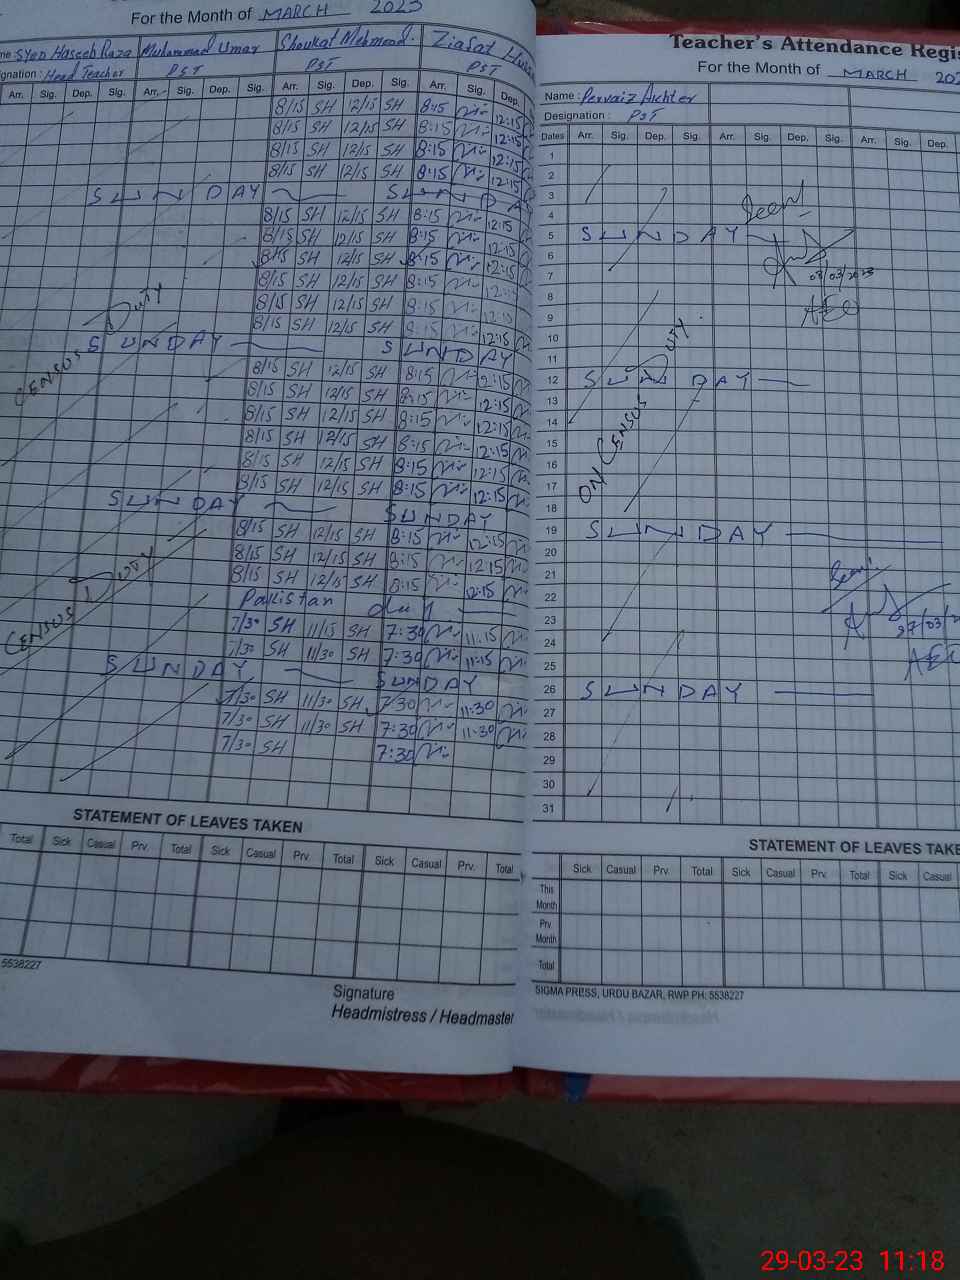 For the Month of MARCH 2023
Name: Syed Haseeb Raza Muhammad Umar Shoukat Mehmood. Ziafat
Designation: Head Teacher PST PST PST
Arr. Sig. Dep. Sig. Arr. Sig. Dep. Sig. Arr. Sig. Dep.
8/15 SH 12/15 SH 8:15 12:15
8/15 SH 12/15 SH 8:15 12:15
8/15 SH 12/15 SH 8:15 12:15
8/15 SH 12/15 SH 8:15 12:15
SUNDAY SUNDAY
8/15 SH 12/15 SH 8:15 12:15
8/15 SH 12/15 SH 8:15 12:15
8/15 SH 12/15 SH 8:15 12:15
8/15 SH 12/15 SH 8:15 12:15
8/15 SH 12/15 SH 8:15 12:15
8/15 SH 12/15 SH 8:15 12:15
CENSUS Duty
SUNDAY SUNDAY
8/15 SH 12/15 SH 8:15 12:15
8/15 SH 12/15 SH 8:15 12:15
8/15 SH 12/15 SH 8:15 12:15
8/15 SH 12/15 SH 8:15 12:15
8/15 SH 12/15 SH 8:15 12:15
8/15 SH 12/15 SH 8:15 12:15
SUNDAY SUNDAY
8/15 SH 12/15 SH 8:15 12:15
8/15 SH 12/15 SH 8:15 12:15
8/15 SH 12/15 SH 8:15 12:15
Pakistan day
CENSUS Duty
7/30 SH 11/15 SH 7:30 11:15
7/30 SH 11/30 SH 7:30 11:15
SUNDAY SUNDAY
7/30 SH 11/30 SH 7/30 11:30
7/30 SH 11/30 SH 7:30 11:30
7/30 SH 7:30
STATEMENT OF LEAVES TAKEN
Total Sick Casual Prv. Total Sick Casual Prv. Total Sick Casual Prv. Total
5538227
Signature
Headmistress / Headmaster
Teacher's Attendance Regis
For the Month of MARCH 202
Name: Pervaiz Akhter
Designation: PST
Dates Arr. Sig. Dep. Sig. Arr. Sig. Dep. Sig. Arr. Sig. Dep.
1
2
3
4 Seen
5 SUNDAY
6
7 08/03/2023
8 AEO
9
10
11
12 SUNDAY
13
14
15
16
17
18
ON CENSUS Duty.
19 SUNDAY
20
21 Seen
22
23 27/03/
24
25 AEO
26 SUNDAY
27
28
29
30
31
STATEMENT OF LEAVES TAKE
Sick Casual Prv. Total Sick Casual Prv. Total Sick Casual
This Month
Prv. Month
Total
SIGMA PRESS, URDU BAZAR, RWP PH: 5538227
29-03-23 11:18